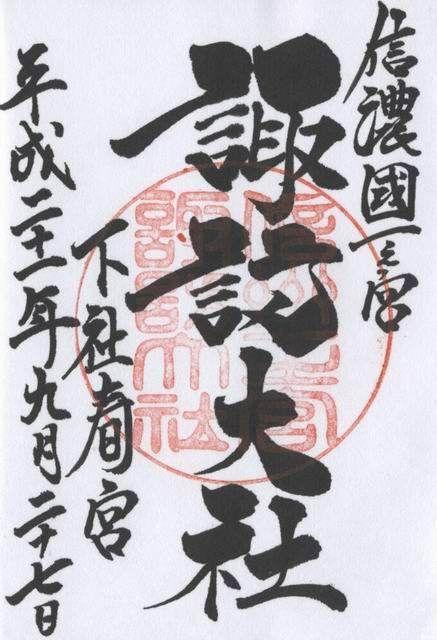 信濃國一之宮
諏訪大社
下社春宮
平成二十一年九月二十七日